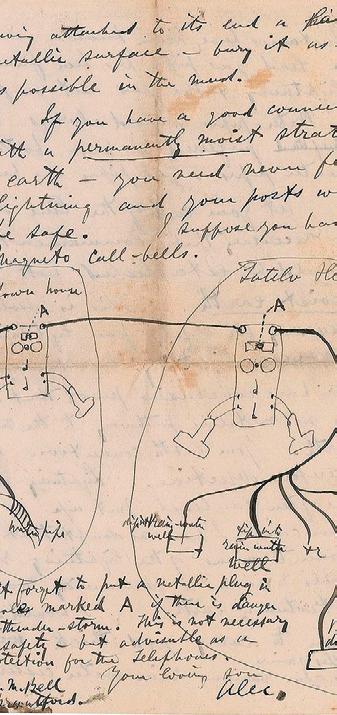 having attached to its end a
metallic surface — bury it as
as possible in the mud.
If you have a good connec
with a permanently moist strat
earth — you need never fe
lightning and your posts w
be safe. I suppose you ha
magneto call-bells.
Brown house
Tutelo He
A
A
water pipe
rain-water
well
rain water
well
forget to put a metallic plug in
holes marked A if there is danger
thunder-storm. This is not necessary
safety — but advisable as a
protection for the telephones.
Your loving son
Alec.
M. Bell
Brantford.